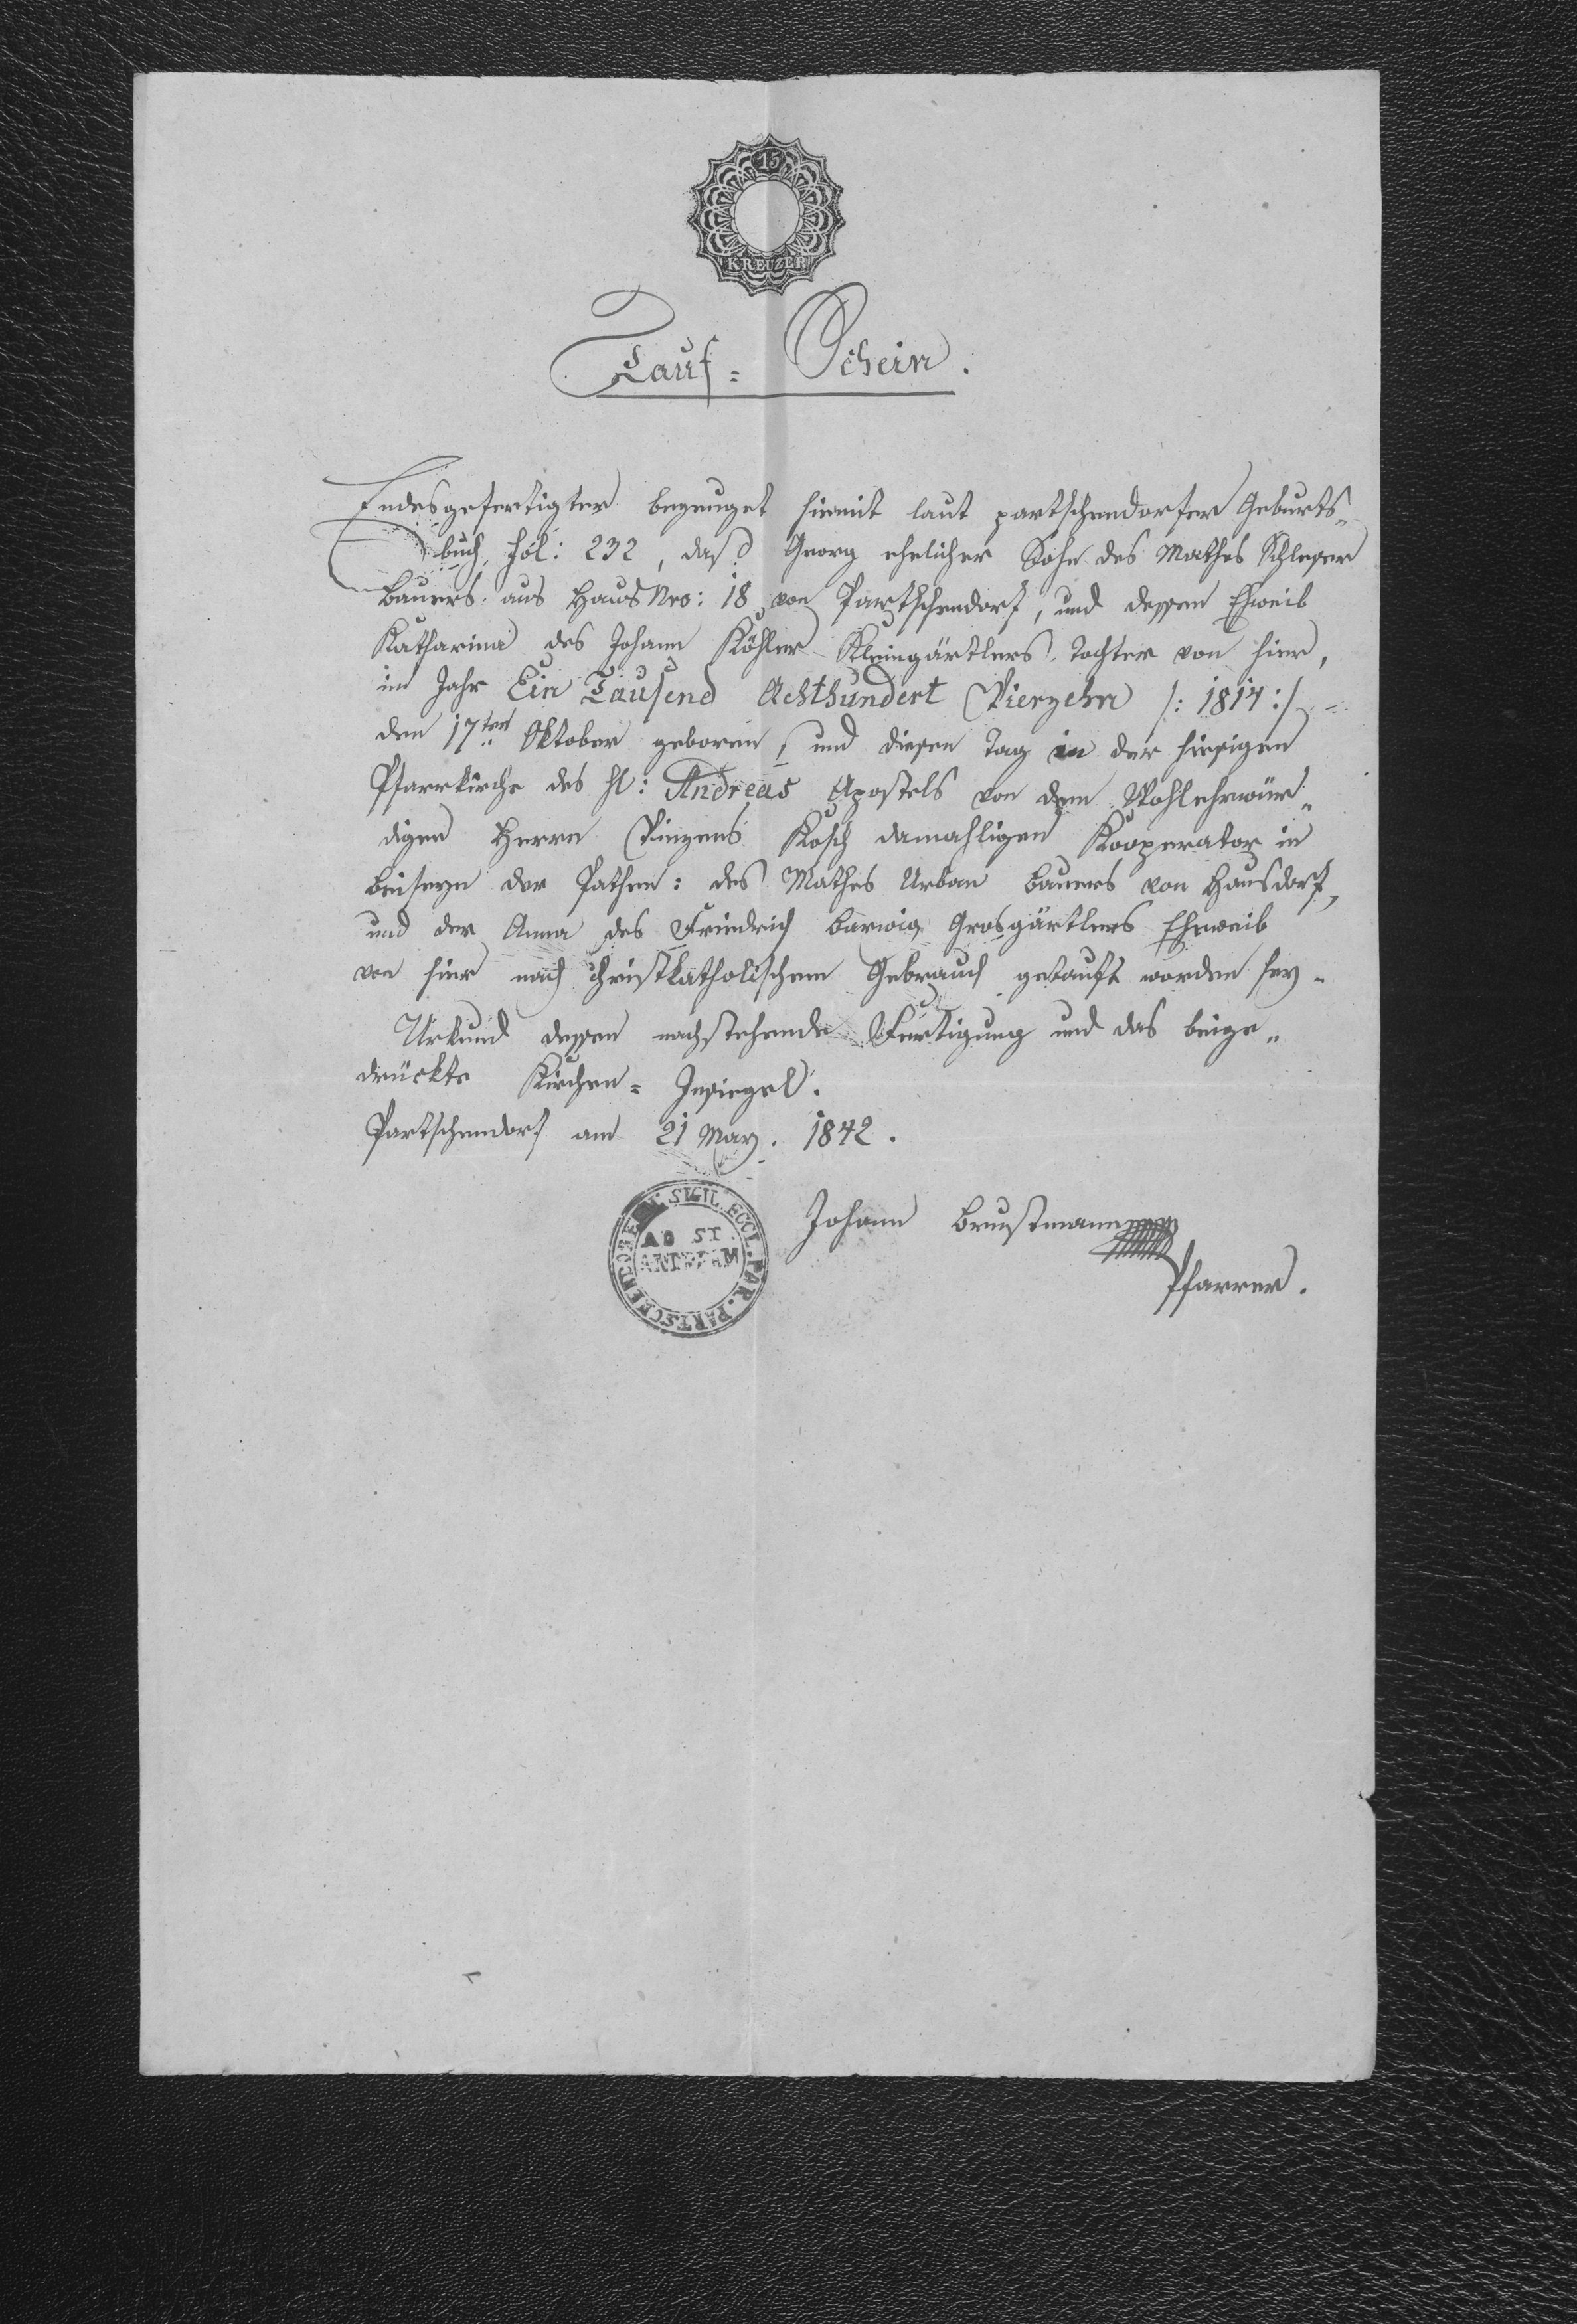 15
KREUZER
Tauf= Schein.
Endesgefertigter bezeuget hiemit laut partschendorfer Geburts„
buch, fol: 232, daß Georg ehelicher Sohn des Mathes Schleser
Bauers aus Haus Nro: 18 von Partschendorf, und dessen Eheweib
Katharina des Johann Köhler Kleingärtlers Tochter von hier,
im Jahr Ein Tausend Achthundert Vierzehn /: 1814 :/
den 17ten Oktober geboren, und diesen Tag in der hiesigen
Pfarrkirche des hl: Andreas Apostels von dem Wohlehrwür„
digen Herrn Vinzens Kosch damahligen Kooperator in
beiseyn der Pathen: des Mathes Urban Bauers von Hausdorf,
und der Anna des Friedrich Barwig Grosgärtlers Eheweib
von hier nach christkatholischem Gebrauch getauft worden sey.
Urkund dessen nachstehende Fertigung und das beige„
drückte Kirchen= Insiegel.
Partschendorf am 21 May. 1842.
SIGIL. ECCL. PAR. PARTSCHENDORF
AD ST.
ANDREAM
Johann Brustmann
Pfarrer.